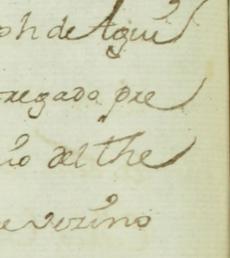 ph de Agui
regado pre
io del The
e vezino